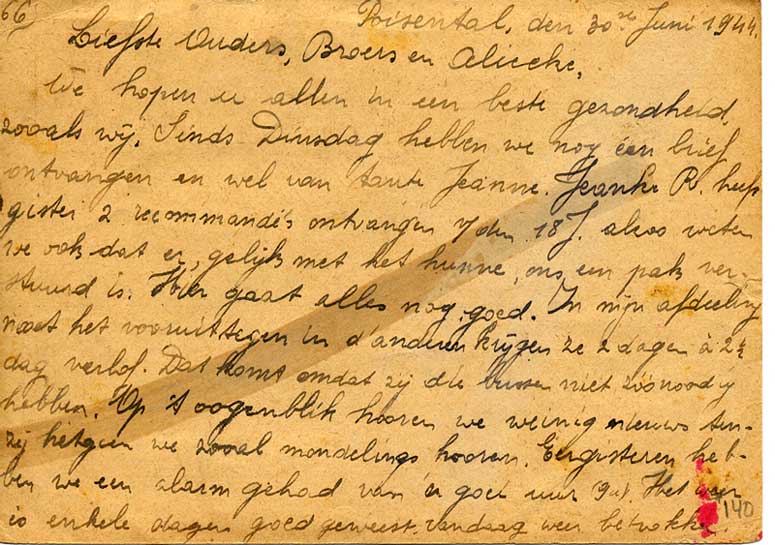 66
Rosental, den 30ste Juni 1944.
Liefste Ouders, Broers en Aliceke,
We hopen u allen in een beste gezondheid,
zooals wij. Sinds Dinsdag hebben we nog één brief
ontvangen en wel van tante Jeanne. Jeanke R. heeft
gister 2 recommandé's ontvangen v/den 18 J. alzoo weten
we ook dat er, gelijk met het hunne, ons een pak ver-
stuurd is. Hier gaat alles nog goed. In mijn afdeeling
moet het vooruit tegen in d'anderen krijgen ze 2 dagen à 2½
dag verlof. Dat komt omdat zij die bussen niet zoo noodig
hebben. Op 't oogenblik hooren we weinig nieuws ten-
zij hetgeen we zooal mondelings hooren. Eergisteren heb-
ben we een alarm gehad van u goed uur Het weer
is enkele dagen goed geweest, vandaag weer betrokken
140